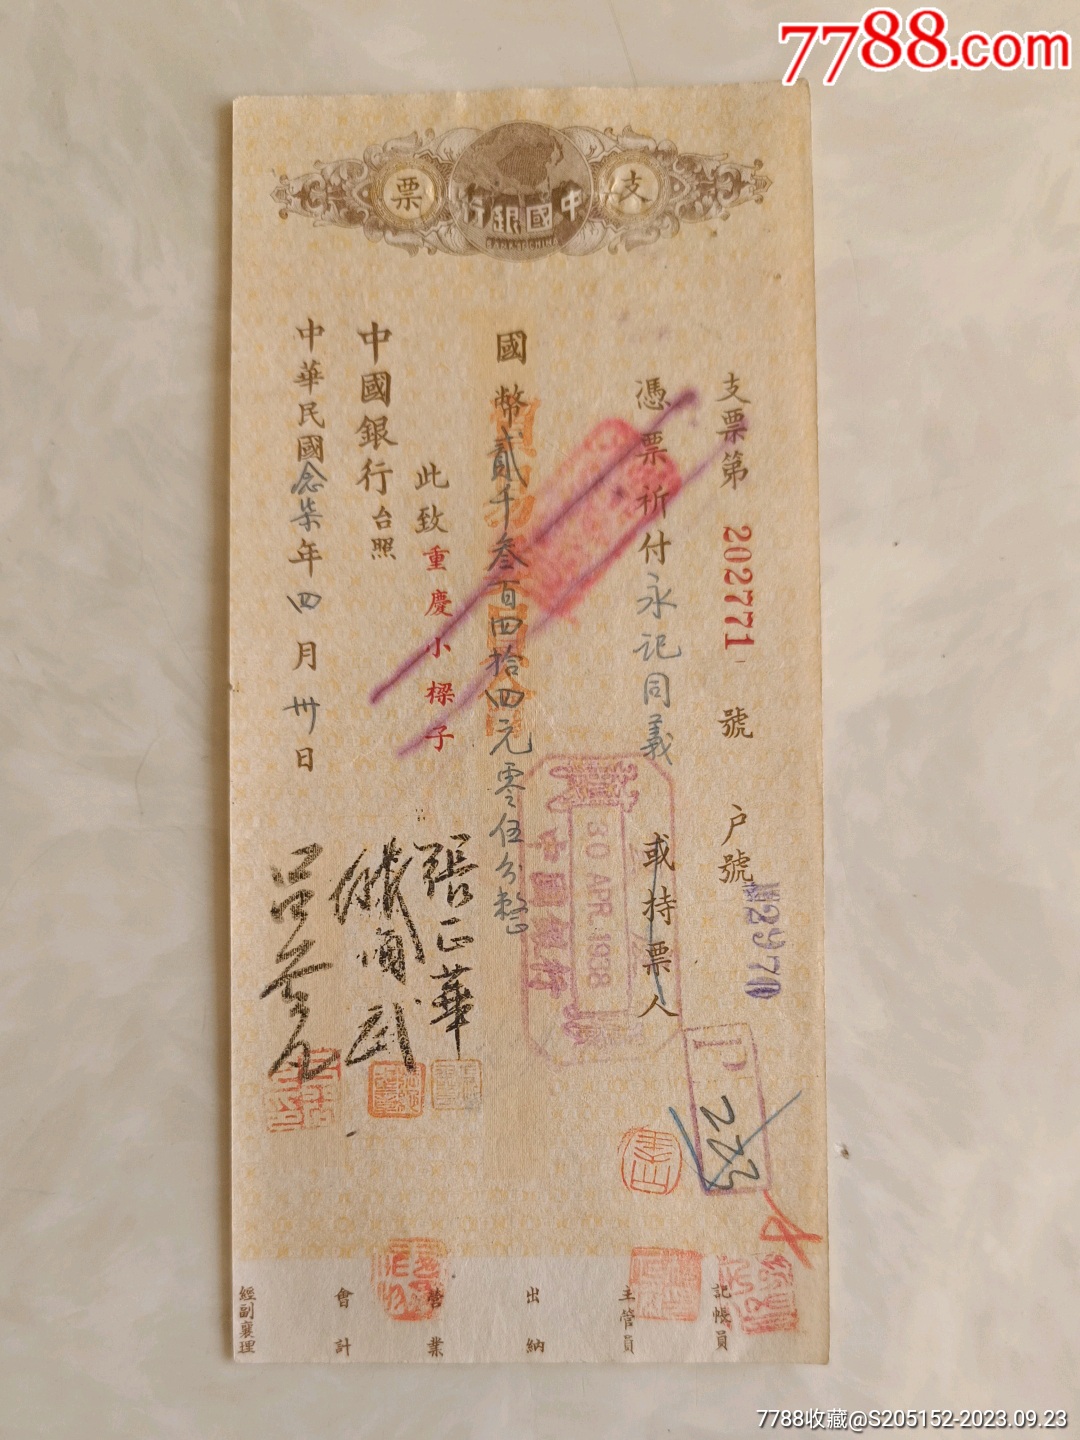 7788.com
支票
中國銀行
BANK OF CHINA
支票第 202771 號 户號 2970
憑票祈付永記同義 或持票人
國幣貳千叁百四拾四元零伍分整
此致重慶小樑子
中國銀行台照
中華民國念柒年四月卅日
張正華
30 APR. 1938
中國銀行
233
記帳員
主管員
出納
營業
會計
經副襄理
7788收藏@S205152-2023.09.23